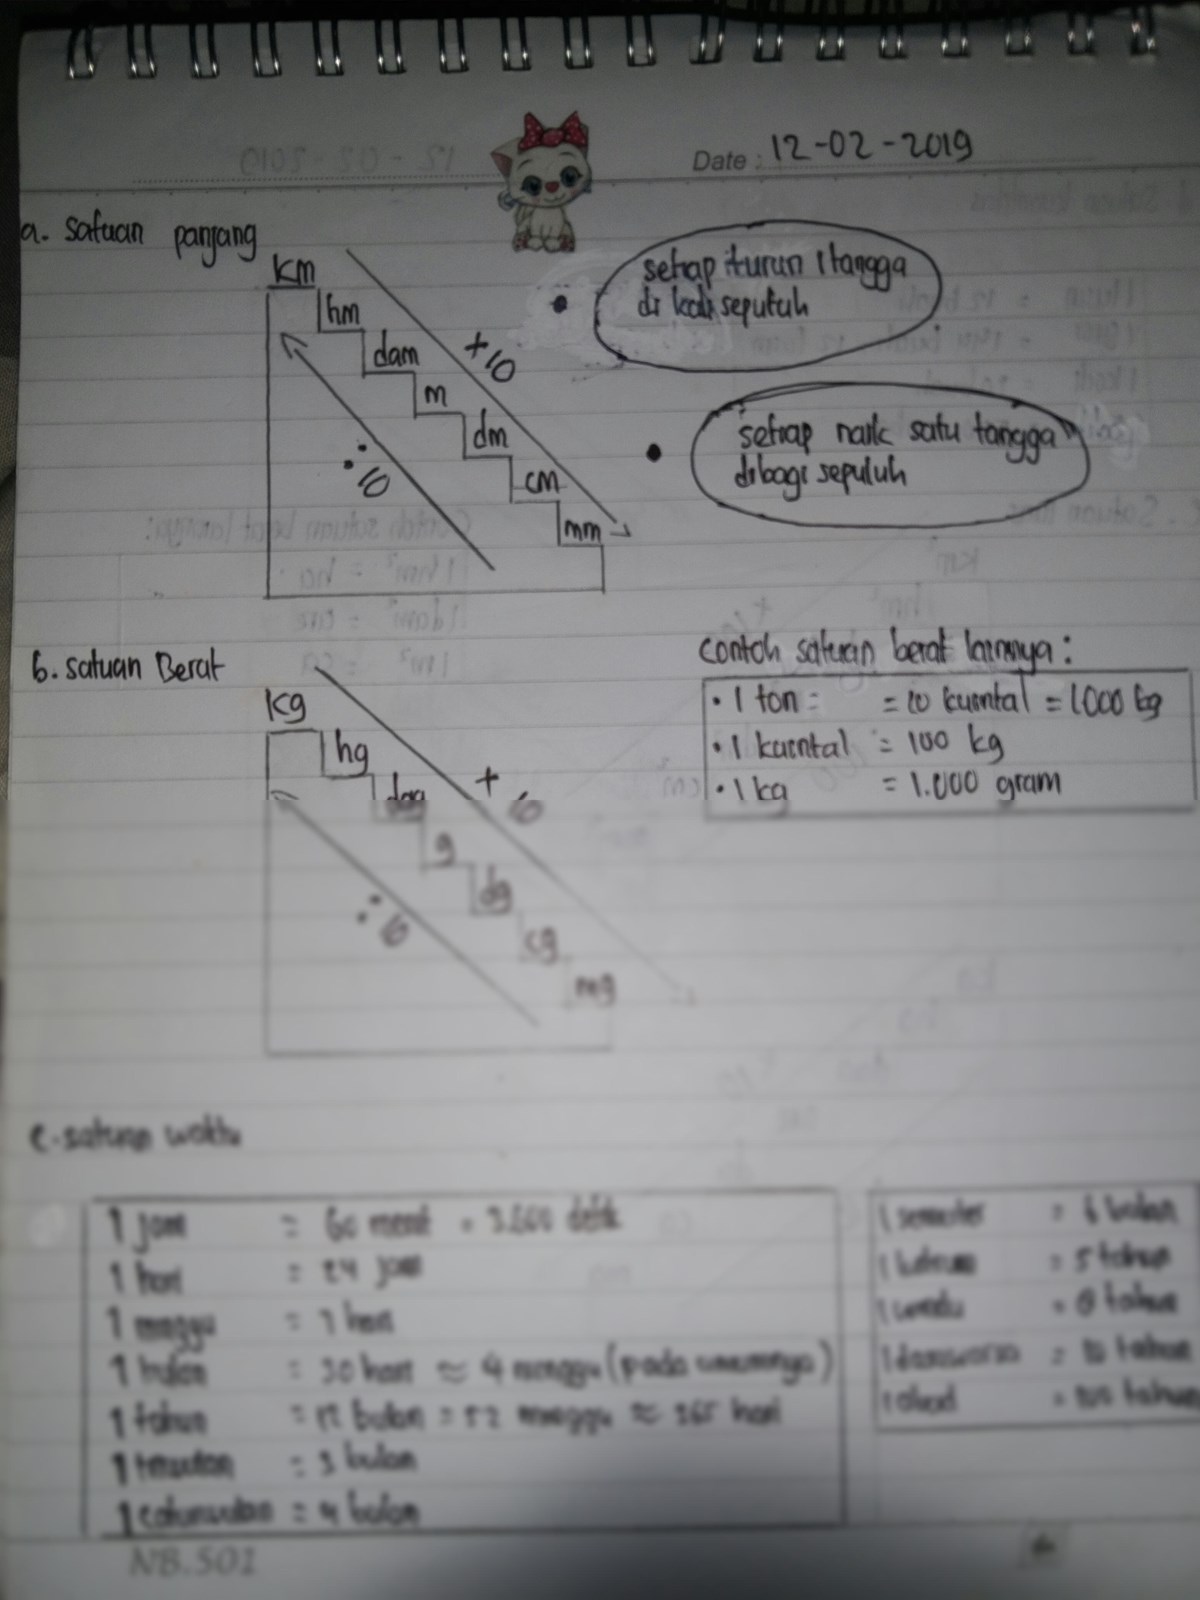 Date : 12-02-2019
a. satuan panjang
km
hm
dam
m
dm
cm
mm
+ 10
: 10
setiap turun 1 tangga
di kali seputuh
setiap naik satu tangga
dibagi sepuluh
b. satuan Berat
kg
hg
dag
g
dg
cg
mg
+ 10
: 10
Contoh satuan berat lainnya :
• 1 ton = = 10 kuintal = 1.000 kg
• 1 kuintal = 100 kg
• 1 kg = 1.000 gram
c. satuan waktu
1 jam = 60 menit = 3.600 detik
1 hari = 24 jam
1 minggu = 7 hari
1 bulan = 30 hari ≈ 4 minggu (pada umumnya)
1 tahun = 12 bulan = 52 minggu ≈ 365 hari
1 triwulan = 3 bulan
1 caturwulan = 4 bulan
1 semester = 6 bulan
1 = 5 tahun
1 windu = 8 tahun
1 dasawarsa = 10 tahun
1 abad = 100 tahun
NB.502